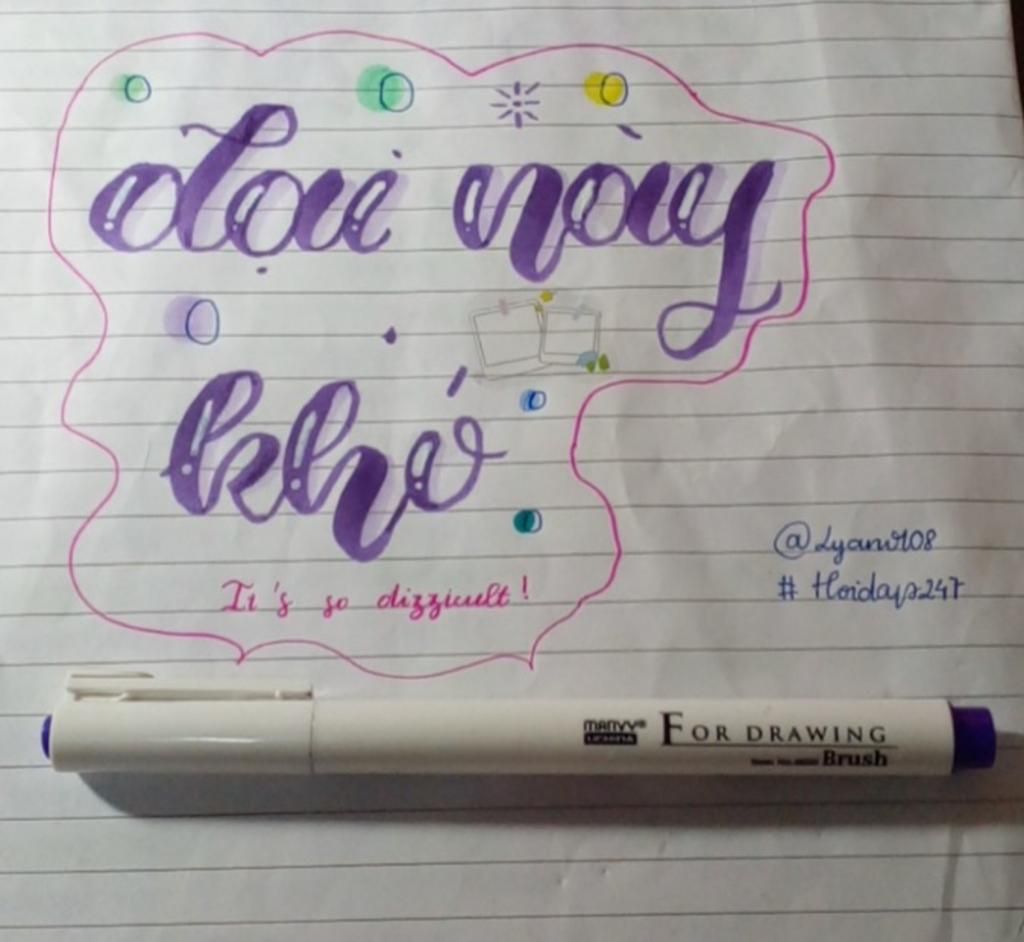 đại này
khó
It's so difficult!
# Hoidap247
MARVY®
UCHIDA
FOR DRAWING
Brush